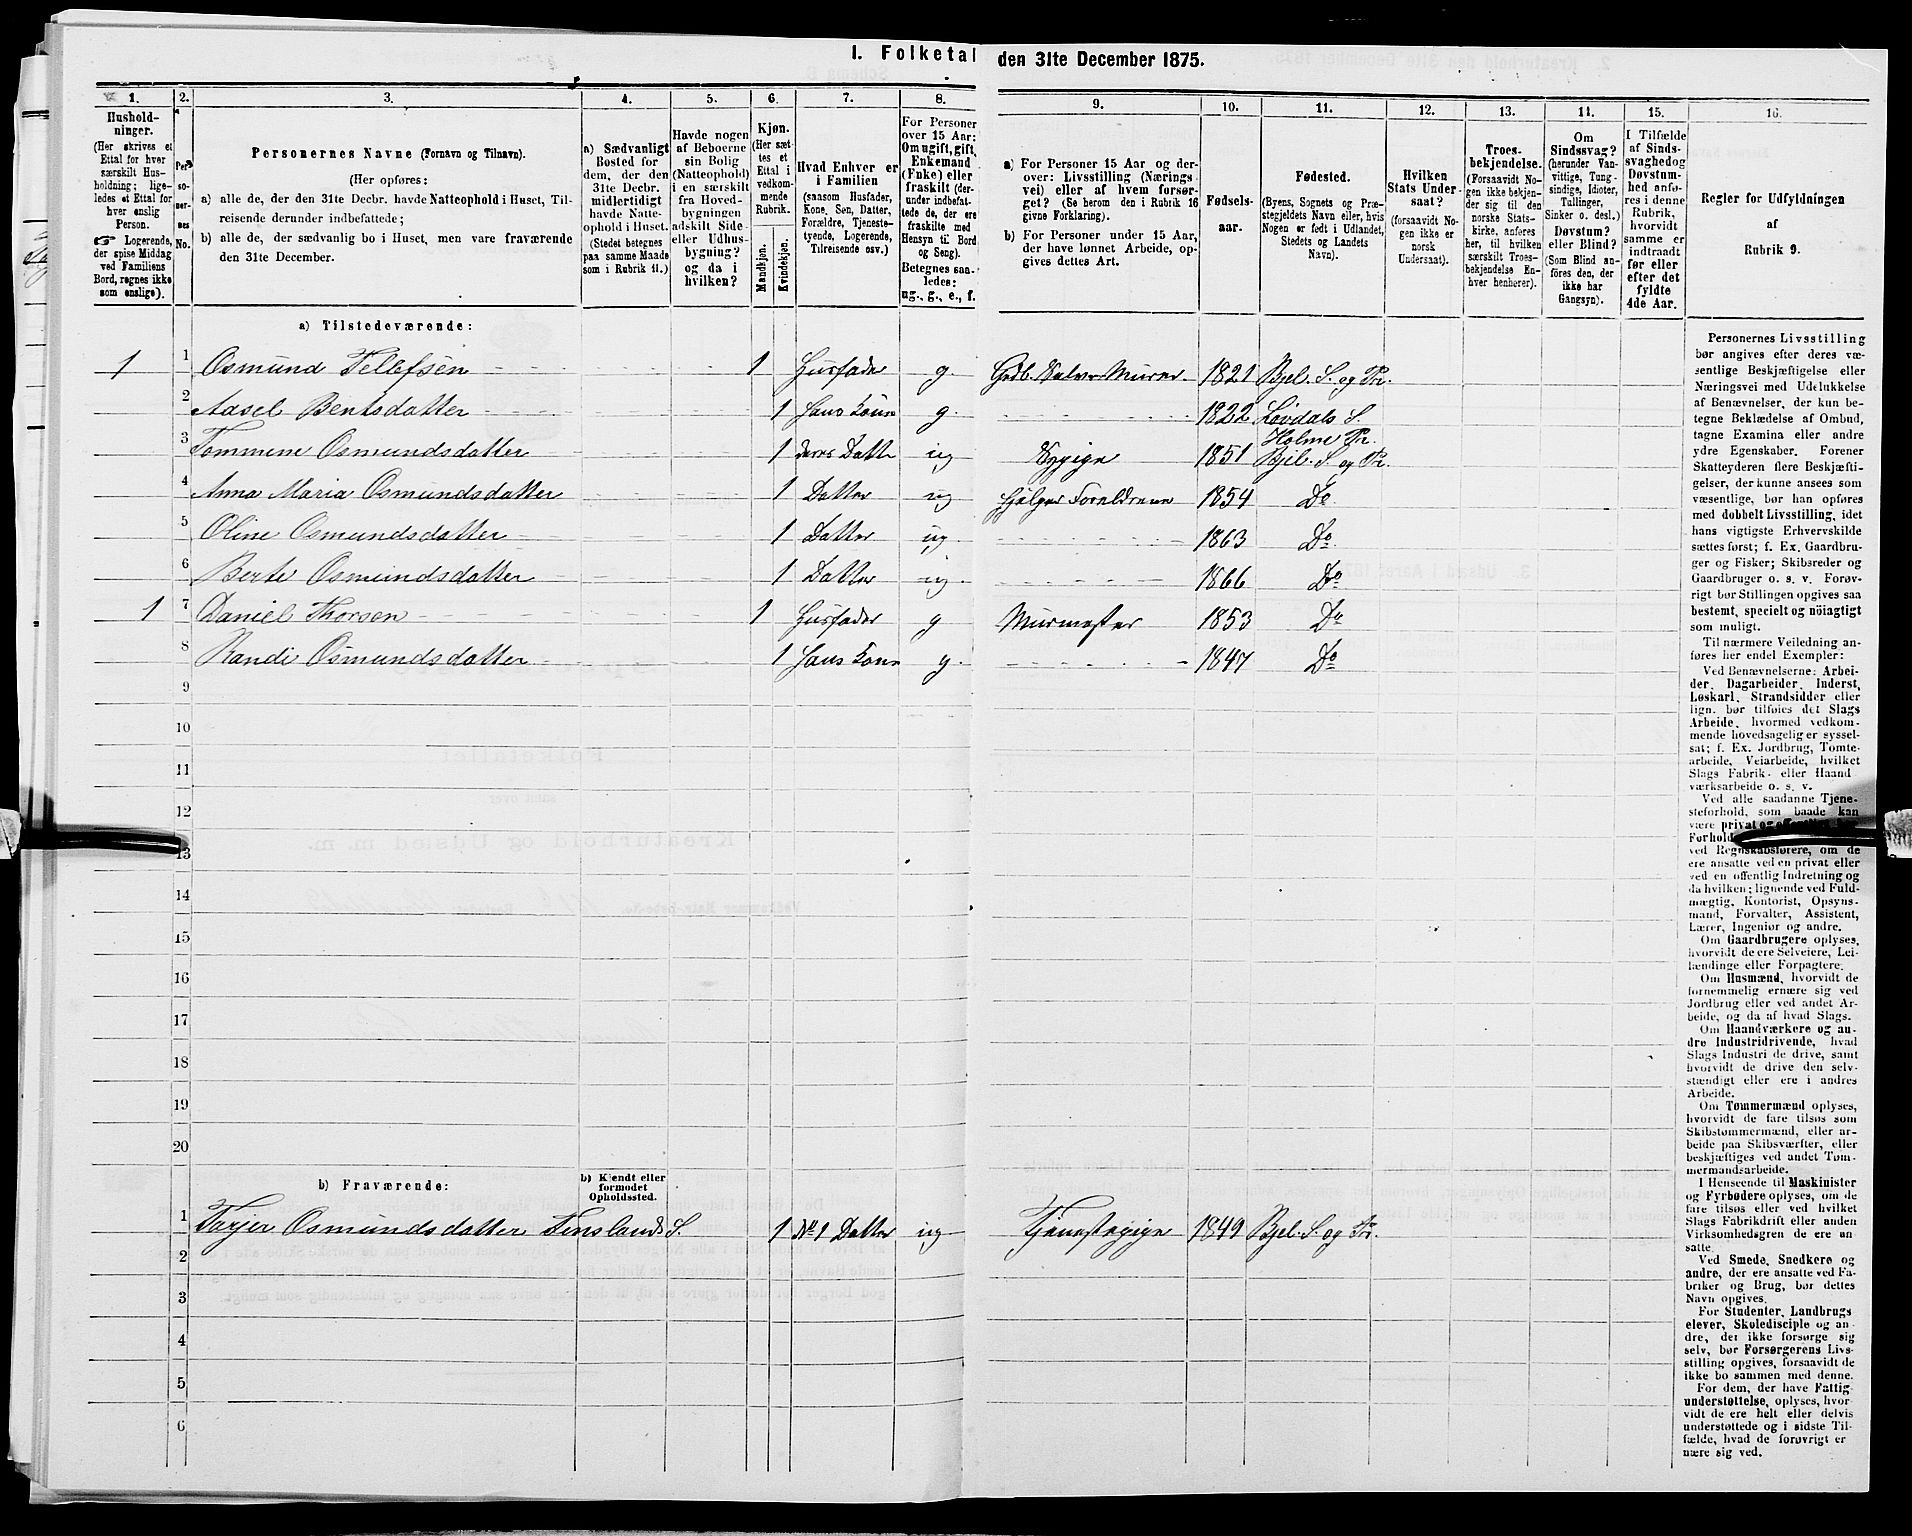 I. Folketal den 31te December 1875.
1. 2. 3. 4. 5. 6. 7. 8. 9. 10. 11. 12. 13. 14. 15. 16.
Hushold-
ninger.
(Her skrives et
Ettal for hver
særskilt Hus-
holdning; lige-
ledes et Ettal for
hver enslig
Person.
☞ Logerende,
der spise Middag
ved Familiens
Bord, regnes ikke
som enslige).
Per-
so-
ner-
nes
No.
Personernes Navne (Fornavn og Tilnavn).
(Her opføres:
a) alle de, der den 31te Decbr. havde Natteophold i Huset, Til-
reisende derunder indbefattede;
b) alle de, der sædvanlig bo i Huset, men vare fraværende
den 31te December.
a) Sædvanligt
Bosted for
dem, der den
31te Decbr.
midlertidigt
havde Natte-
ophold i Huset.
(Stedet betegnes
paa samme Maade
som i Rubrik 11.)
Havde nogen
af Beboerne
sin Bolig
(Natteophold)
i en særskilt
fra Hoved-
bygningen
adskilt Side-
eller Udhus-
bygning?
og da i
hvilken?
Kjøn.
(Her sæt-
tes et
Ettal i
vedkom-
mende
Rubrik.
Mandkjøn.
Kvindekjøn.
Hvad Enhver er
i Familien
(saasom Husfader,
Kone, Søn, Datter,
Forældre, Tjeneste-
tyende, Logerende,
Tilreisende osv.)
For Personer
over 15 Aar:
Om ugift, gift,
Enkemand
(Enke) eller
fraskilt (der-
under indbefat-
tede de, der ere
fraskilte med
Hensyn til Bord
og Seng).
Betegnes saa-
ledes:
ug., g., e., f.
a) For Personer 15 Aar og der-
over: Livsstilling (Nærings-
vei) eller af hvem forsør-
get? (Se herom den i Rubrik 16
givne Forklaring).
b) For Personer under 15 Aar,
der have lønnet Arbeide, op-
gives dettes Art.
Fødsels-
aar.
Fødested.
(Byens, Sognets og Præ-
stegjeldets Navn eller, hvis
Nogen er født i Udlandet,
Stedets og Landets
Navn).
Hvilken
Stats Under-
saat?
(forsaavidt No-
gen ikke er
norsk
Undersaat).
Troes-
bekjendelse.
(Forsaavidt No-
gen ikke bekjen-
der sig til den
norske Stats-
kirke, anføres
her, til hvilken
særskilt Troes-
bekjendelse En-
hver henhører).
Om
Sindssvag?
(herunder Van-
vittige, Tung-
sindige, Idioter,
Tullinger,
Sinker o. desl.)
Døvstum?
eller Blind?
(Som Blind an-
føres den, der
ikke har
Gangsyn).
I Tilfælde
af Sinds-
svaghed og
Døvstum-
hed anfø-
res i denne
Rubrik,
hvorvidt
samme er
indtraadt
før eller
efter det
fyldte
4de Aar.
Regler for Udfyldningen
af
Rubrik 9.
a) Tilstedeværende:
1 1 Osmund Tellefsen 1 Husfader g. Grdb. Selvei. Murer 1821 Bjel. S. og Pr.
2 Aasel Bentsdatter 1 Hans Kone g. 1822 Løvdals S. Holme Pr.
3 Tommine Osmundsdatter 1 deres Datter ug Sypige 1851 Bjel. S. og Pr.
4 Anna Maria Osmundsdatter 1 Datter ug hjelper Forældrene 1854 Do
5 Oline Osmundsdatter 1 Datter ug. 1863 Do
6 Berte Osmundsdatter 1 Datter ug. 1866 Do
1 7 Daniel Thorsen 1 Husfader g Murmester 1853 Do
8 Randi Osmundsdatter 1 Hans Kone g. 1847 Do
9
10
11
12
13
14
15
16
17
18
19
20
b) Fraværende:
b) Kjendt eller
formodet
Opholdssted.
1 Tarjer Osmundsdatter Finsland S. 1 No 1 Datter ug Tjenestepige 1849 Bjel. S. og Pr.
2
3
4
5
6
Personernes Livsstilling
bør angives efter deres væ-
sentlige Beskjæftigelse eller
Næringsvei med Udelukkelse
af Benævnelser, der kun be-
tegne Beklædelse af Ombud,
tagne Examina eller andre
ydre Egenskaber. Forener
Skatteyderen flere Beskjæfti-
gelser, der kunne ansees som
væsentlige, bør han opføres
med dobbelt Livsstilling, idet
hans vigtigste Erhvervskilde
sættes først; f. Ex. Gaardbru-
ger og Fisker; Skibsreder og
Gaardbruger o. s. v. Forøv-
rigt bør Stillingen opgives saa
bestemt, specielt og nöiagtigt
som muligt.
Til nærmere Veiledning an-
føres her endel Exempler:
Ved Benævnelserne: Arbei-
der, Dagarbeider, Inderst,
Løskarl, Strandsidder eller
lign. bør tilføies det Slags
Arbeide, hvormed vedkom-
mende hovedsagelig er syssel-
sat; f. Ex. Jordbrug, Tomte-
arbeide, Veiarbeide, hvilket
Slags Fabrik- eller Haand
værksarbeide o. s. v.
Ved alle saadanne Tjene-
steforhold, som baade kan
være privat og offentligt, bør
Forhold
ved Regnskabsførere, om de
ere ansatte ved en privat eller
ved en offentlig Indretning og
da hvilken; lignende ved Fuld-
mægtig, Kontorist, Opsyns-
mand, Forvalter, Assistent,
Lærer, Ingeniør og andre.
Om Gaardbrugere oplyses,
hvorvidt de ere Selveiere, Lei-
lændinge eller Forpagtere.
Om Husmænd, hvorvidt de
fornemmelig ernære sig ved
Jordbrug eller ved andet Ar-
beide, og da af hvad Slags.
Om Haandværkere og an-
dre Industridrivende, hvad
Slags Industri de drive, samt
hvorvidt de drive den selv-
stændigt eller ere i andres
Arbeide.
Om Tømmermænd oplyses,
hvorvidt de fare tilsøs som
Skibstømmermænd, eller ar-
beide paa Skibsværfter, eller
beskjæftiges ved andet Tøm-
mermandsarbeide.
I Henseende til Maskinister
og Fyrbødere oplyses, om de
fare tilsøs eller ved hvilket
Slags Fabrikdrift eller anden
Virksomhedsgren de ere an-
satte.
Ved Smede, Snedkere og
andre, der ere ansatte ved Fa-
briker og Brug, bør dettes
Navn opgives.
For Studenter, Landbrugs
elever, Skoledisciple og an-
dre, der ikke forsørge sig
selv, bør Forsørgerens Livs-
stilling opgives, forsaavidt de
ikke bo sammen med denne.
For dem, der have Fattig-
understøttelse, oplyses, hvor-
vidt de ere helt eller delvis
understøttede og i sidste Til-
fælde, hvad de forøvrigt er-
nære sig ved.